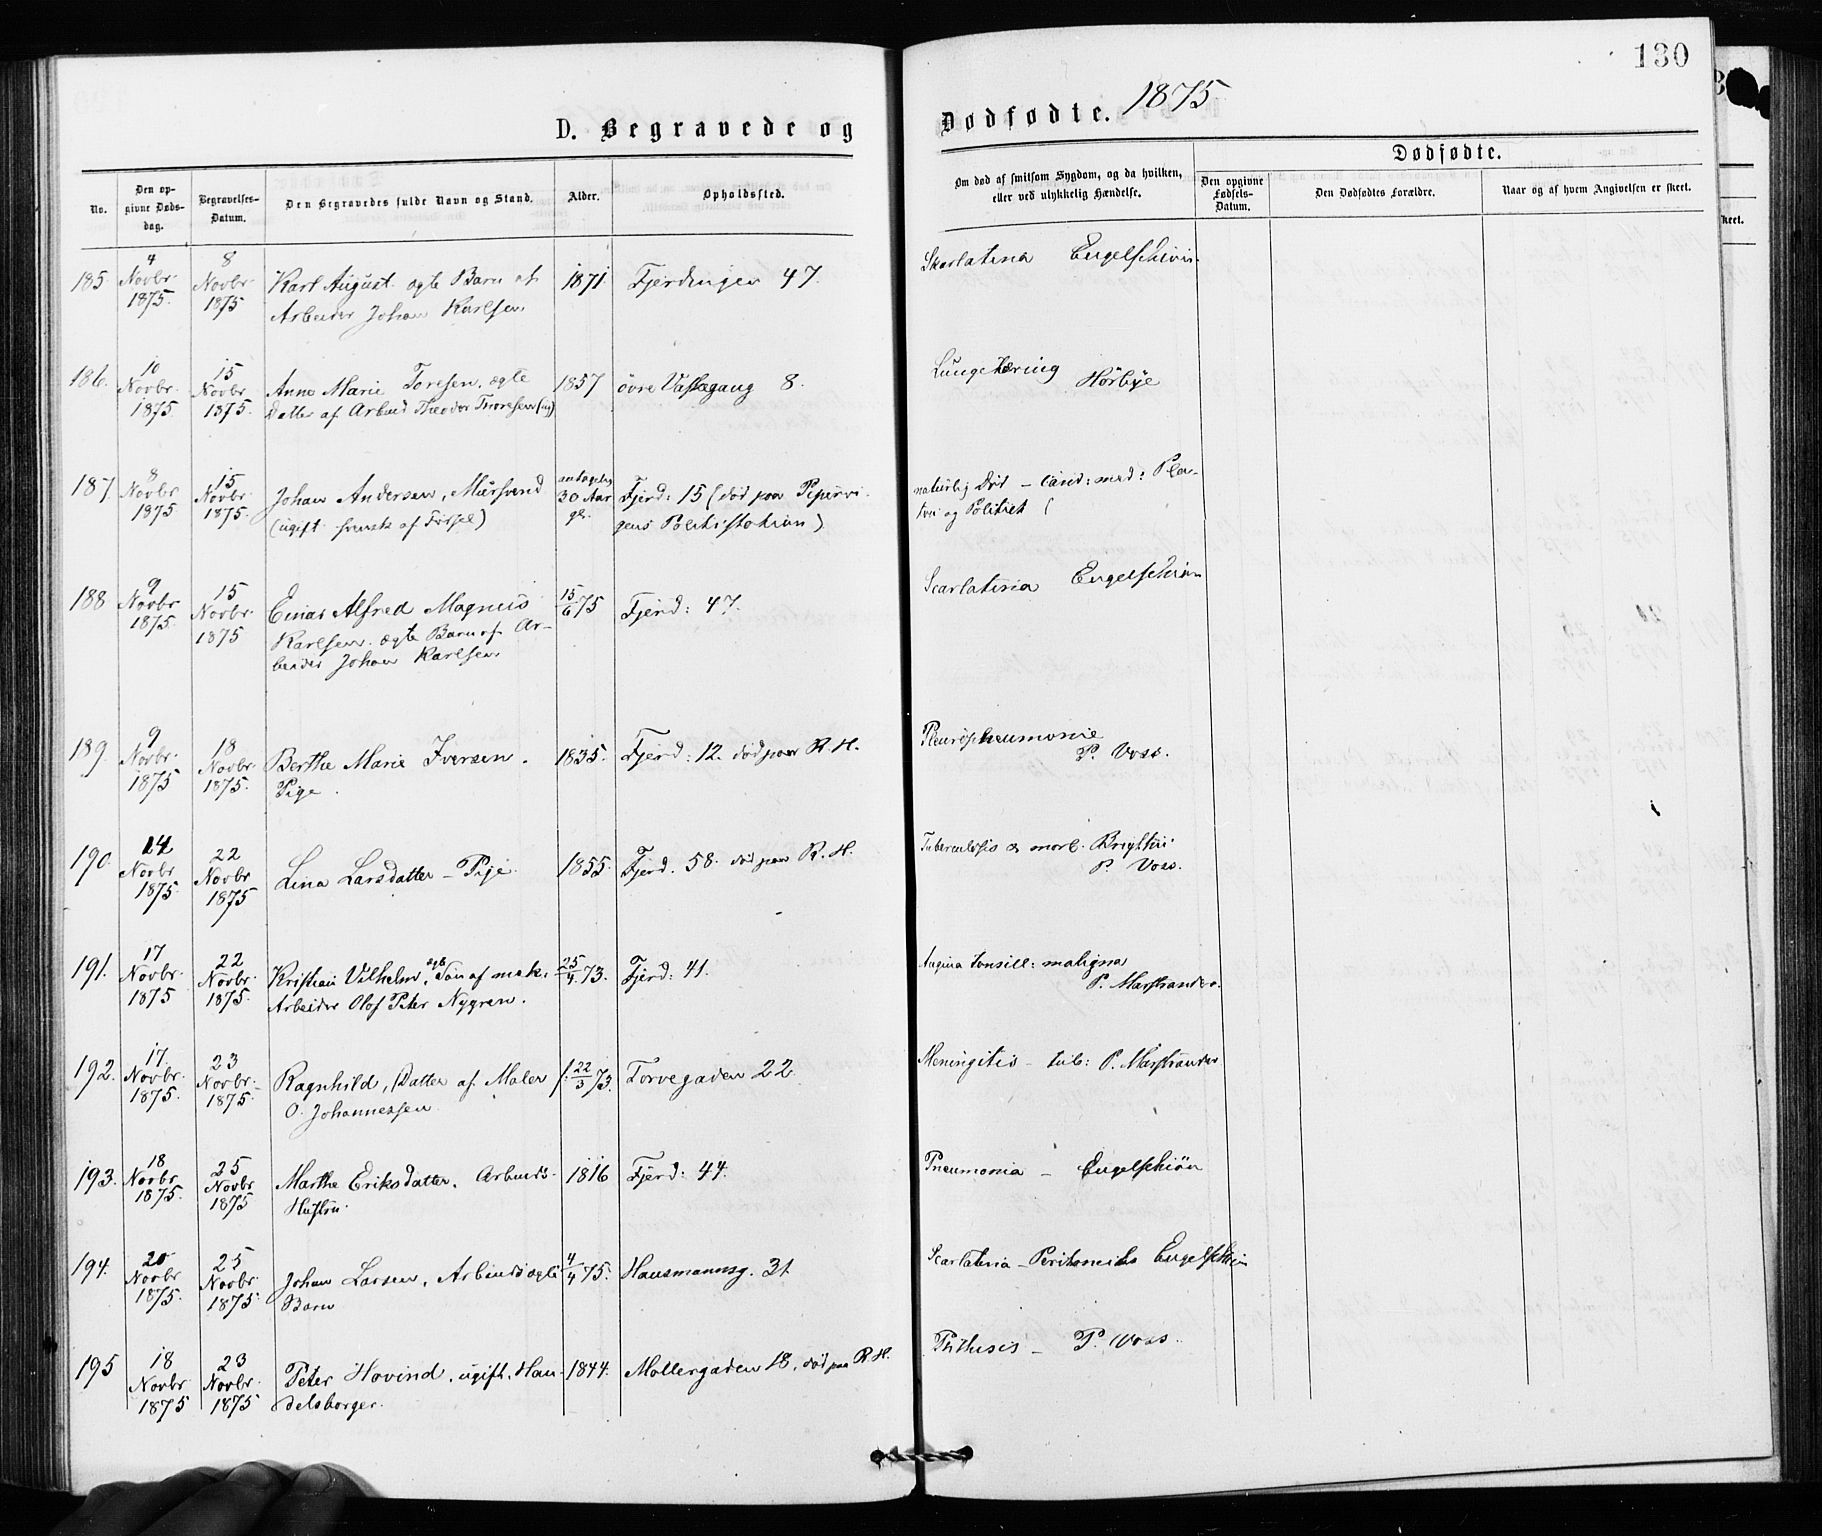 130
D. Begravede og Dødfødte. 1875
No.
Den opgivne Dødsdag.
Begravelses-Datum.
Den Begravedes fulde Navn og Stand.
Alder.
Opholdssted.
Om død af smitsom Sygdom, og da hvilken, eller ved ulykkelig Hændelse.
Dødfødte.
Den opgivne Fødsels-Datum.
Den Dødfødtes Forældre.
Naar og af hvem Angivelsen er skeet.
185. 4 Novbr. 1875. 8 Novbr. 1875 Karl August. ægte Barn af 1871. Fjerdingen 47. Skarlatina Engelschiøn.
Arbeider Johan Karlsen
186. 10 Novbr. 1875 15 Novbr. 1875. Anne Marie Toresen. ægte 1857 övre Vaskegang 8. Lungetæring Hörbye
Datter af Arbeid Theodor Thoresen
187. 8 Novbr 1875 15 Novbr. 1875. Johan Andersen, Mursvend antagelig 30 Aar gl. Fjerd: 15 (död paa Pipervi- naturlig Död – cand: med:
(ugift svensk af Födsel) gens Politistation) og Politiet
188 9 Novbr 1875. 15 Novbr. 1875 Einar Alfred Magnus 15/6 75 Fjerd: 47. Scarlatina Engelschiøn
Karlsen. ægte Barn af Ar-
beider Johan Karlsen
189. 9 Novbr. 1875 18 Novbr 1875. Berthe Marie Iversen. 1835. Fjerd: 12. död paa R. H. Pleuropneumonie
Pige. P. Voss.
190. 14 Novbr 1875. 22 Novbr 1875 Lina Larsdatter – Pige. 1855. Fjerd. 58. död paa R. H. Tuberculosis & morb. Brigthii
P. Voss.
191. 17 Novbr. 1875 22 Novbr. 1875. Kristian Vilhelm, ægte Søn af mek. 25/4 73. Fjerd: 41. Angina tonsill: maligna
Arbeider Olof Peter Nygren. P. Marstrander.
192. 17. Novbr. 1875. 23 Novbr. 1875. Ragnhild, Datter af Maler f. 22/3 73. Torvegaden 22 Meningitis – tub: P. Marstrander
O. Johannessen
193. 18 Novbr. 1875. 25 Novbr 1875 Marthe Eriksdatter. Arbeids- 1816 Fjerd: 44. Pneumonia – Engelschiøn
Hustru.
194. 20 Novbr 1875. 25 Novbr. 1875. Johan Larsen, Arbeids ægte 4/4 75. Hausmannsg. 31. Scarlatina – Peritonitis Engelschiøn
Barn
195 18 Novbr 1875 23 Novbr. 1875 Peter Hovind, ugift. Han- 1844. Møllergaden 18, död paa R. H. Phthisis – P. Voss.
delsborger.